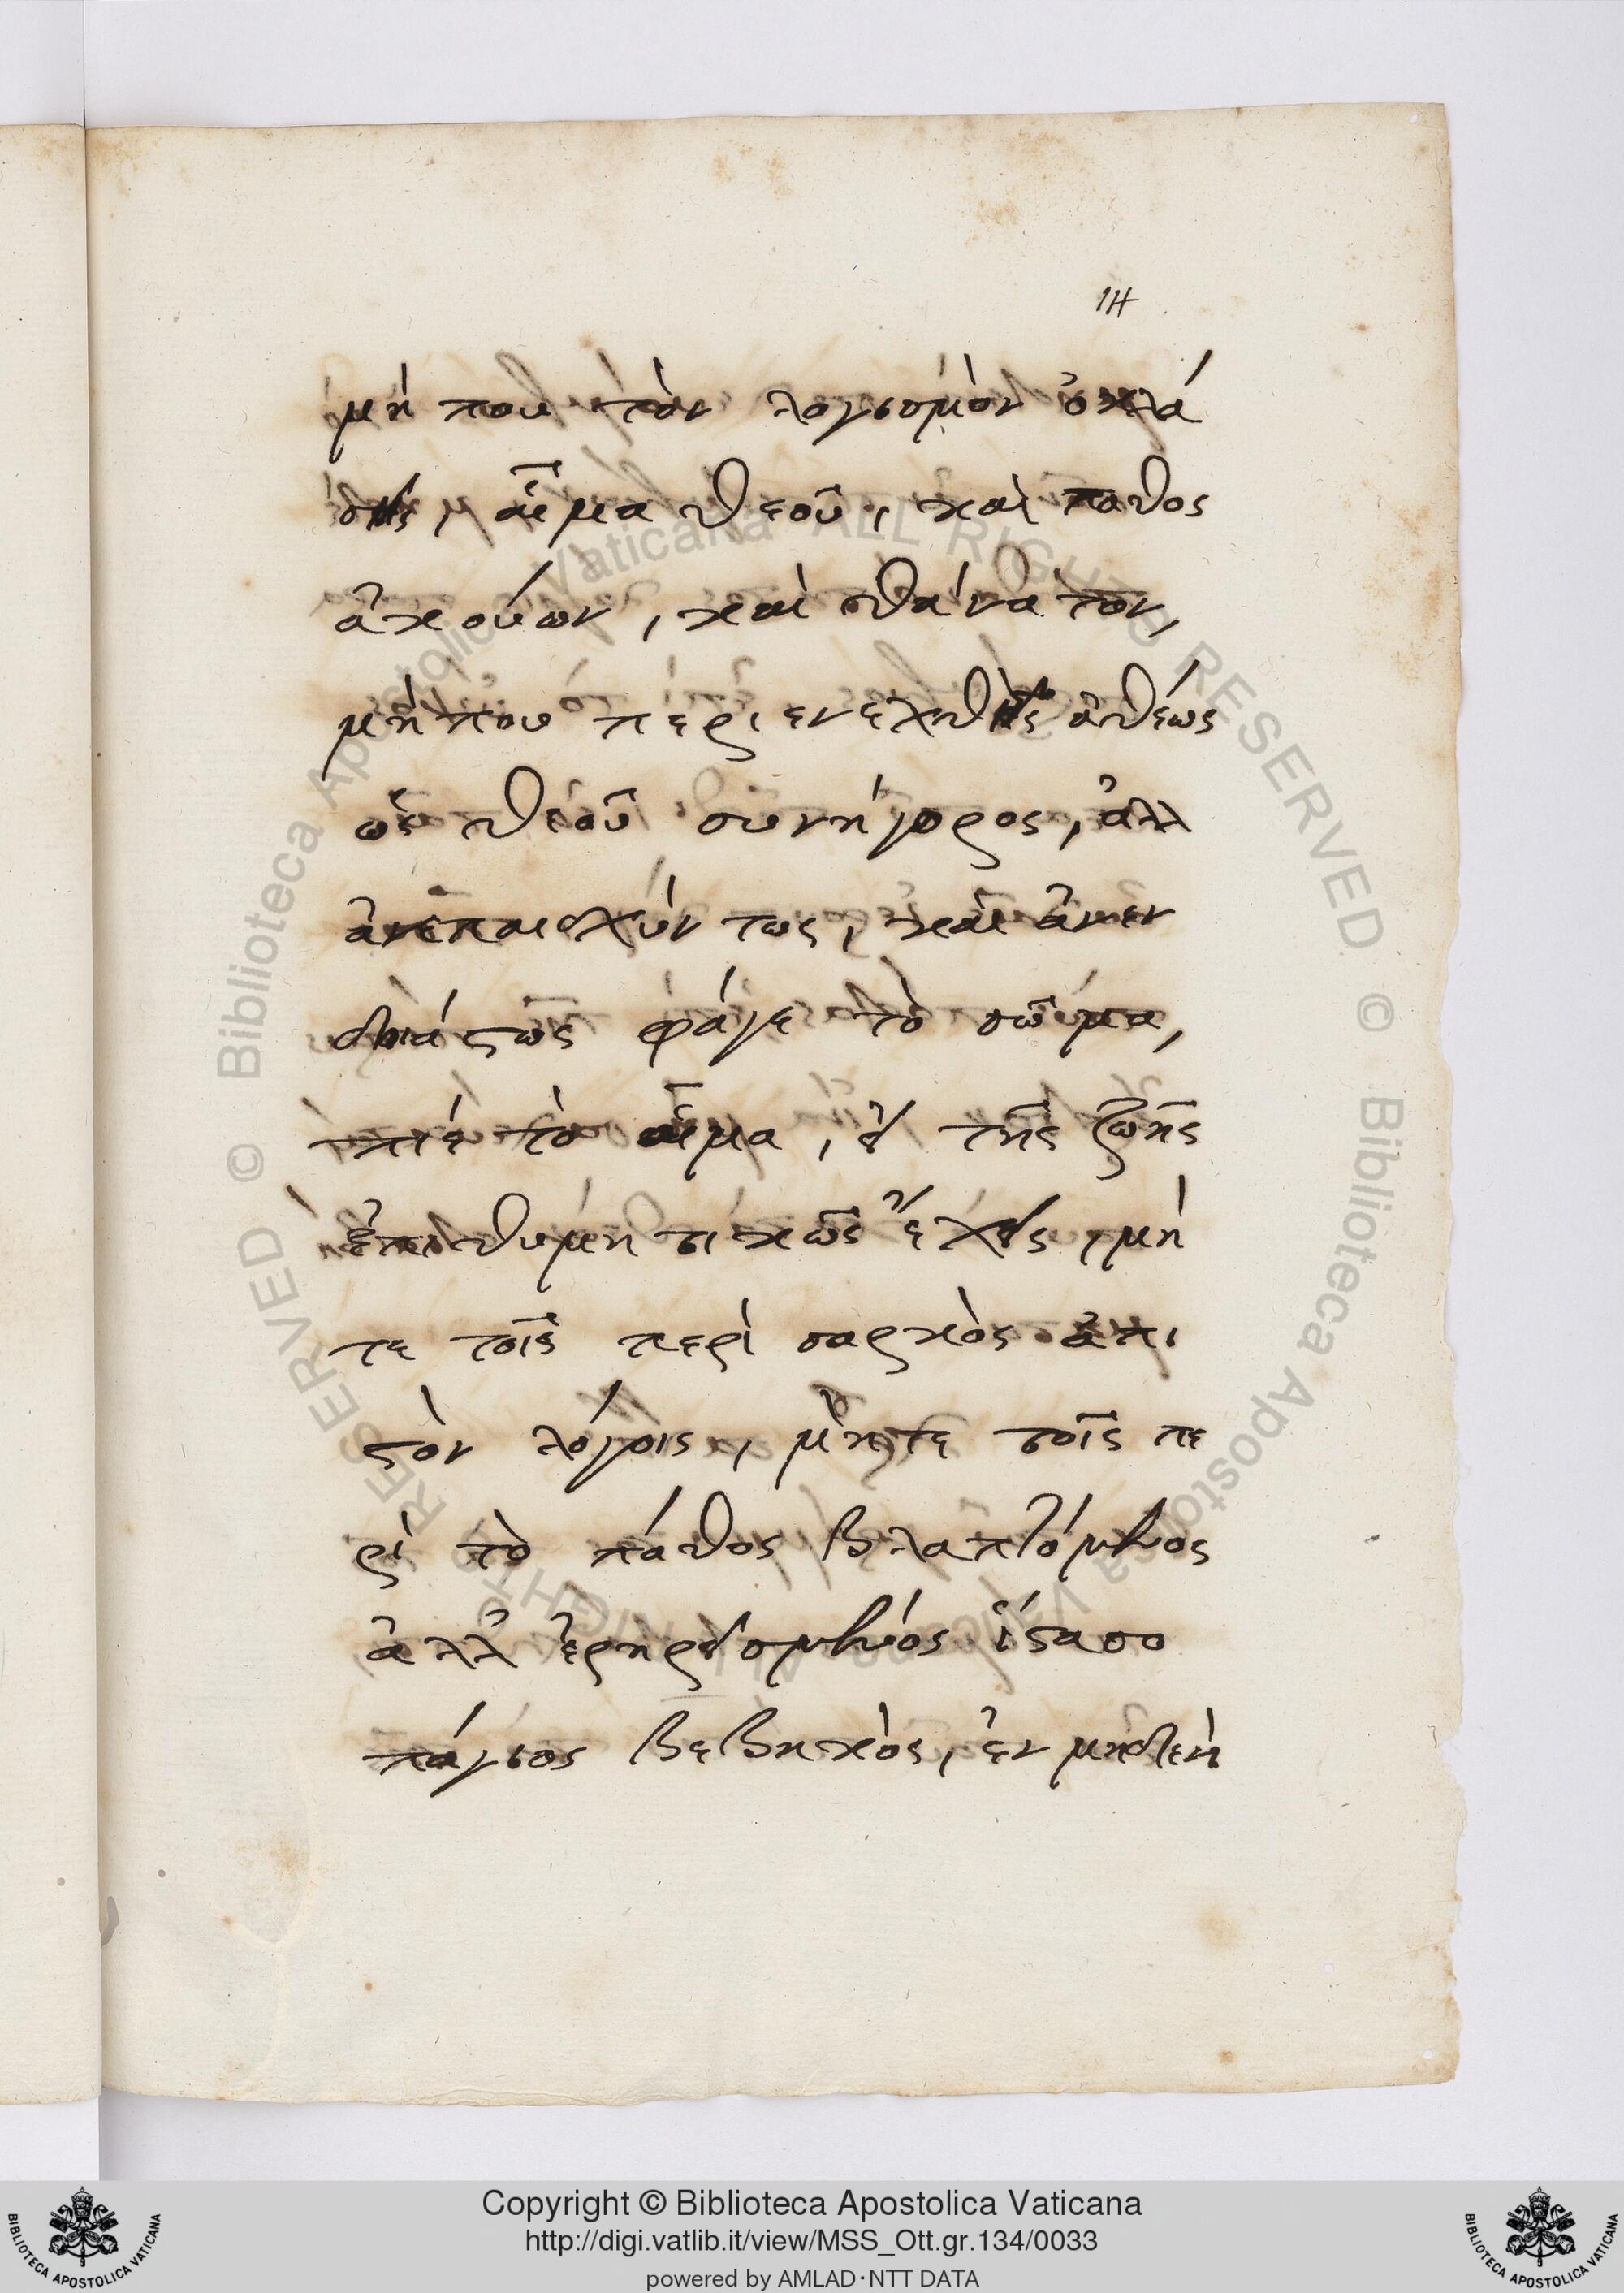 14
μή που τὸν λογισμὸν ὀκλά
σῃς, αἷμα θεοῦ, καὶ παθος
ἀκούων, καὶ θάνατον,
μή που περιενεχθῇς ἀθέως
ὡς θεοῦ συνήγορος, ἀλλ
ἀνεπαισχύντως, καὶ ἀνεν
δοιάστως φάγε τὸ σῶμα,
πίε τὸ αἷμα, εἰ τῆς ζωῆς
ἐπιθυμητικῶς ἔχεις, μή
τε τοῖς περὶ σαρκὸς ἀπι
στὸν λόγοις, μὴτε τοῖς πε
ρὶ τὸ πάθος βλαπτόμενος
ἀλλ' ἐρηρεισμένος ἵστασο
πάγιος βεβηκὸς, ἐν μηδενὶ
Copyright © Biblioteca Apostolica Vaticana
http://digi.vatlib.it/view/MSS_Ott.gr.134/0033
powered by AMLAD·NTT DATA
BIBLIOTECA APOSTOLICA VATICANA
BIBLIOTECA APOSTOLICA VATICANA
© Biblioteca Apostolica Vaticana ALL RIGHTS RESERVED
© Biblioteca Apostolica Vaticana ALL RIGHTS RESERVED